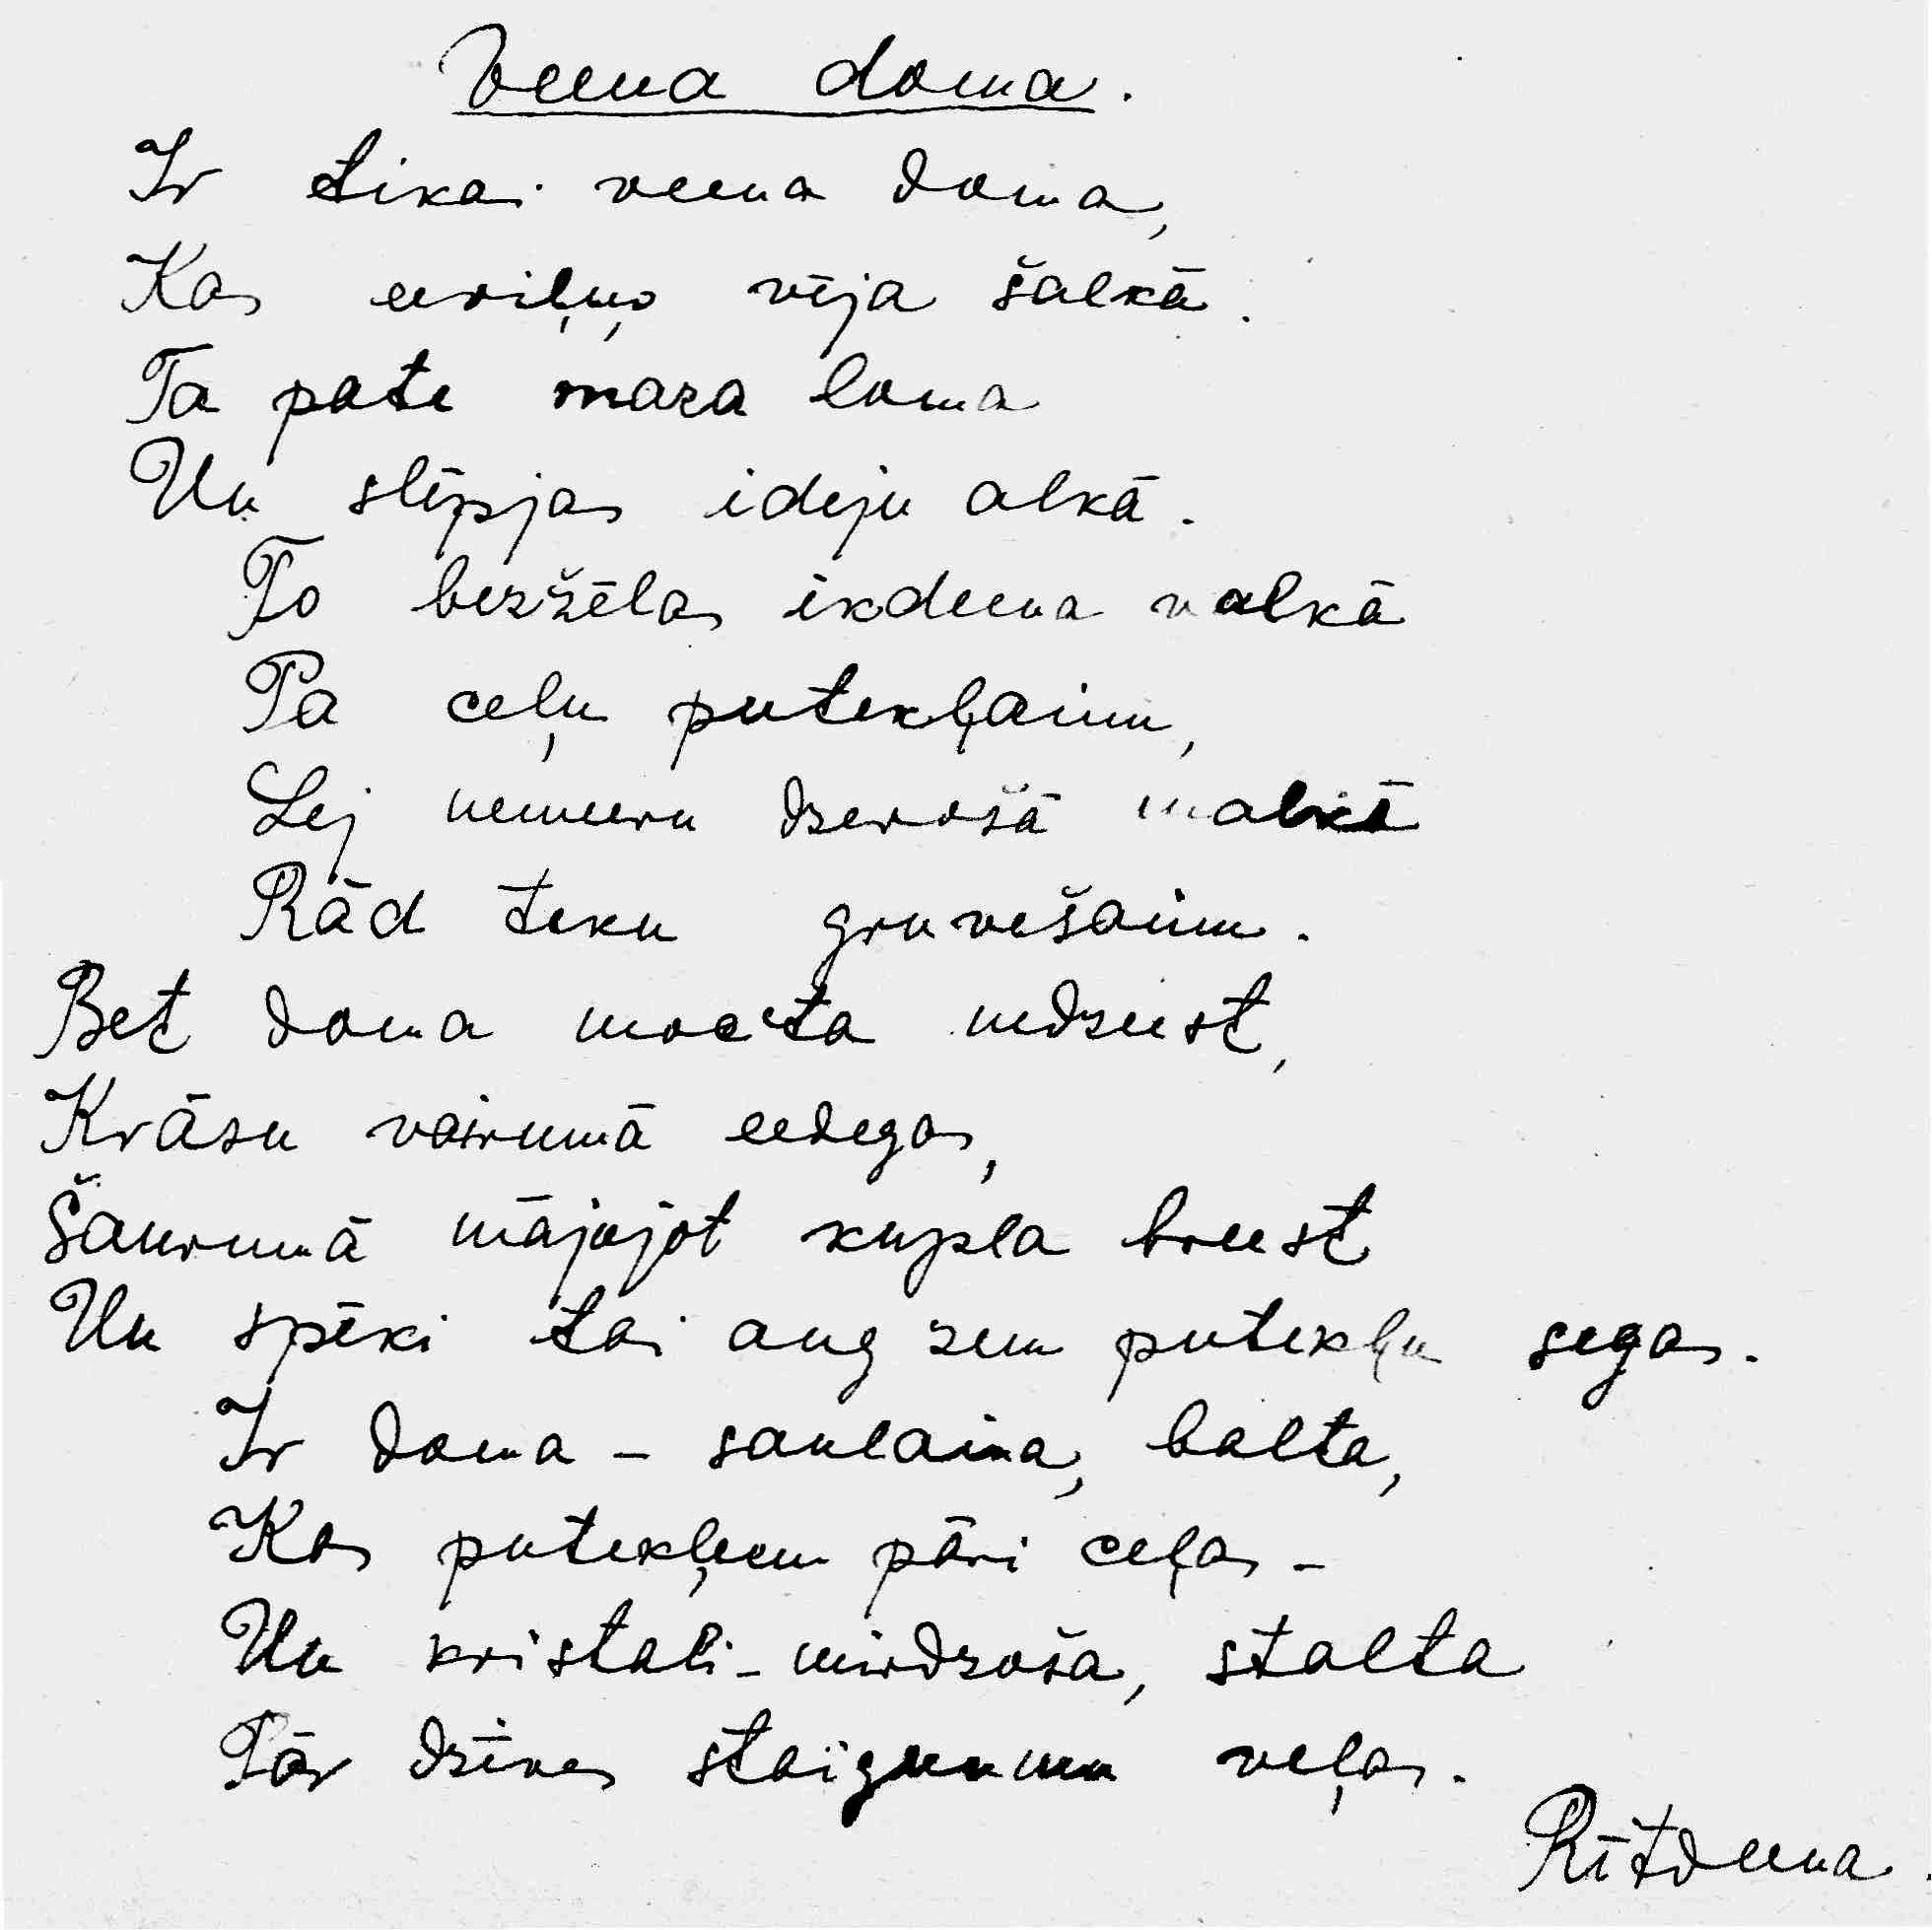 Veena doma.
Ir tikai veena doma,
Kas eeviļņo vēja šalkā.
Ta pate maza loma
Un slēpjas ideju alkā.
To bezžēlas ikdeena valkā
Pa ceļu putekļainu,
Lej nemeeru dzerošā malkā
Rād teku gruvešainu.
Bet doma mocita nedzeest,
Krāsu vairumā eedegas,
Šaurumā mājojot kupla breest
Un spēki tai aug zem putekļu segas.
Ir doma - saulaina, balta,
Kas putekļeem pāri ceļas -
Un kristali-mirdzoša, stalta
Pār dzīves staigunumu veļas.
Rītdeena.